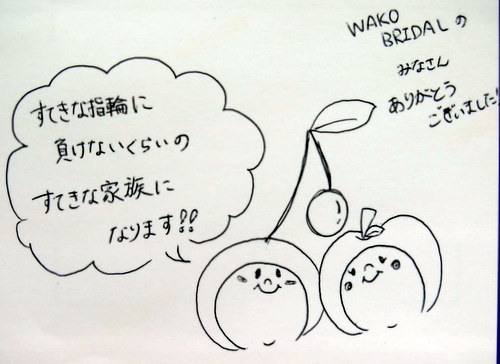 WAKO
BRIDALの
みなさん
ありがとう
ございました!
すてきな指輪に
負けないくらいの
すてきな家族に
なります!!